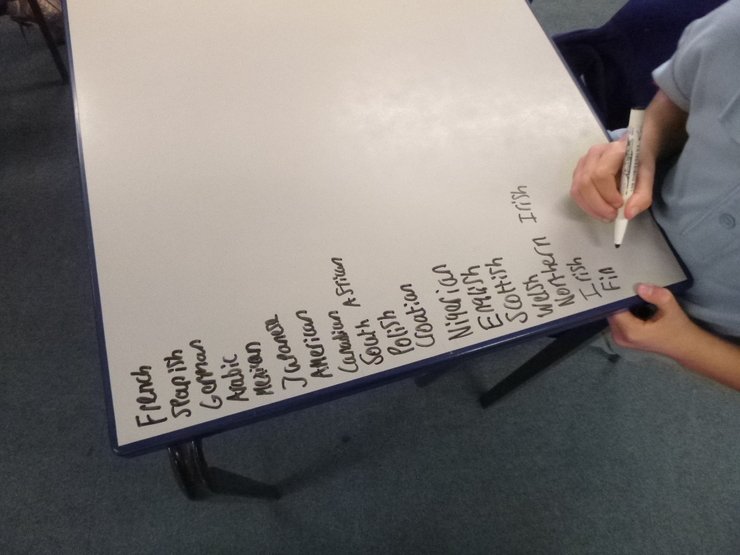 French
Spapish
German
Arabic
Mexican
Japanese
American
Canadian
South African
Polish
Croatian
Nigerian
English
Scottish
Welsh
Northern Irish
Irish
Fin